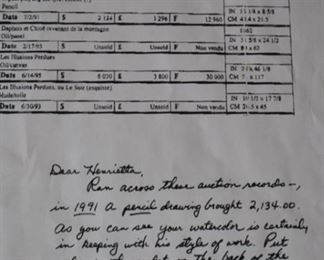 Pencil
Date 7/2/91 $ 2 134 £ 1 296 F 12 960
IN 17 1/8 x 8 5/8
CM 43.4 x 21.5
Daphnis et Chloé revenant de la montagne
Oil/panel
1862
Date 2/17/93 $ Unsold £ Unsold F Non vendu
IN 31 5/8 x 24 1/2
Les Illusions Perdues
Oil/canvas
Date 6/14/95 $ £ 3 800 F 30 000
Les Illusions Perdues, ou Le Soir (esquisse)
Huile/toile
Date 6/30/93 $ Unsold £ Unsold F Non vendu
IN 10 1/2 x 17 7/8
CM 26.5 x 45
Dear Henrietta,
Ran across these auction records -,
in 1991 a pencil drawing brought 2,134.00.
As you can see your watercolor is certainly
in keeping with his style of work. Put
the back of the